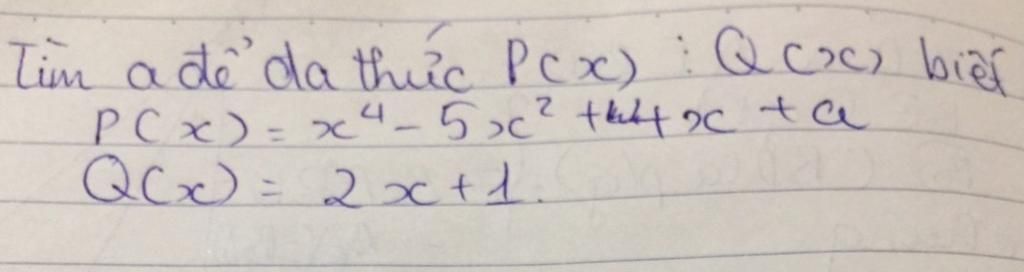 Tìm a để đa thức P(x) ⋮ Q(x) biết
P(x) = x⁴ - 5x² + 4x + a
Q(x) = 2x + 1.